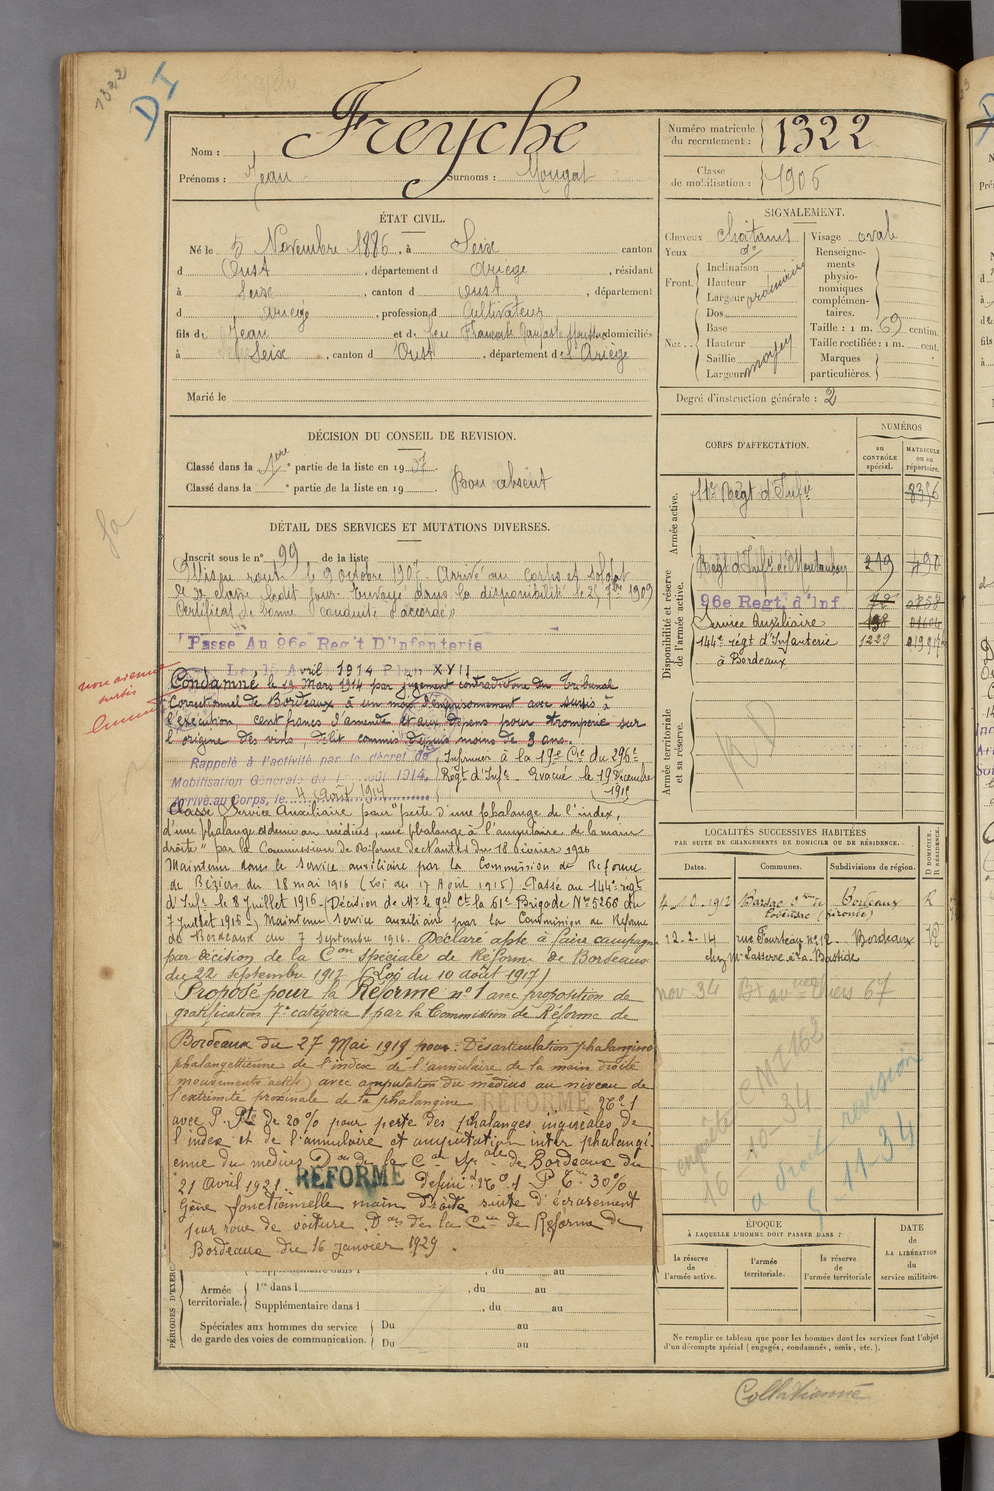 1322
DI
Nom : Freyche
Prénoms : Jean Surnoms : Mougat
Numéro matricule du recrutement : 1322
Classe de mobilisation : 1906
ÉTAT CIVIL.
Né le 5 Novembre 1886, à Seix canton
d Oust, département d Ariège, résidant
à Seix, canton d Oust, département
d Ariège, profession d Cultivateur
fils de Jean et de feu domiciliés
à Seix, canton d Oust, département de l'Ariège
Marié le
SIGNALEMENT.
Cheveux chatains
Yeux do
Front. Inclinaison
Hauteur
Largeur
Nez. Dos
Base
Hauteur
Saillie
Largeur moyen
Visage oval
Renseignements physionomiques complémentaires.
Taille : 1 m. 69 centim.
Taille rectifiée : 1 m. cent.
Marques particulières.
Degré d'instruction générale : 2
DÉCISION DU CONSEIL DE REVISION.
Classé dans la 1ere partie de la liste en 1907.
Classé dans la e partie de la liste en 19 .
Bon absent
DÉTAIL DES SERVICES ET MUTATIONS DIVERSES.
Inscrit sous le n° 99 de la liste
Mis en route le 9 octobre 1907. Arrivé au corps et soldat
de 2e classe ledit jour. Envoyé dans la disponibilité le 25 7bre 1909
Certificat de bonne conduite "accordé"
Passé Au 96e Reg't D'Infanterie
Le 15 Avril 1914 Plan XVII
Condamné le 19 Mars 1914 par jugement contradictoire du Tribunal
Correctionnel de Bordeaux à un mois d'emprisonnement avec sursis à
l'exécution, cent francs d'amende et aux dépens pour tromperie sur
l'origine des vins, délit commis depuis moins de 3 ans.
non avenue
sursis
Rappelé à l'activité par le décret de
Mobilisation Générale du 1 août 1914.
Arrivé au Corps, le 4 Août 1914
Infirmier à la 19e Cie du 296e
Régt d'Infie Evacué le 19 Décembre
1915
Classé Service Auxiliaire pour "perte d'une phalange de l'index,
d'une phalange et demie au médius, une phalange à l'annulaire de la main
droite" par la Commission de Réforme de Nantes du 18 février 1916
Maintenu dans le service auxiliaire par la Commission de Réforme
de Béziers du 18 mai 1916 (Loi du 17 Août 1915) Passé au 144e régt
d'Infie le 8 Juillet 1916 (Décision de Mr le gal Ct la 61e Brigade No 5260 du
7 juillet 1916) Maintenu service auxiliaire par la Commission de Réforme
de Bordeaux du 7 septembre 1916. Déclaré apte à faire campagne
par décision de la Con spéciale de Réforme de Bordeaux
du 22 septembre 1917 (Loi du 10 août 1917)
Proposé pour la Réforme n° 1 avec proposition de
gratification 7e catégorie par la Commission de Réforme de
Bordeaux du 27 Mai 1919 pour : Désarticulation phalangino
phalangettienne de l'index et de l'annulaire de la main droite
(mouvements actifs) avec amputation du médius au niveau de
l'extrémité proximale de la phalangine RÉFORMÉ No 1
avec P. Pte de 20 % pour perte des phalanges inguéales de
l'index et de l'annulaire et amputation inter phalangi
enne du médius Don de la Con Spale de Bordeaux du
21 Avril 1921. RÉFORMÉ Définif No 1 P. 30 %
Gêne fonctionnelle main droite suite d'écrasement
par roue de voiture. Don de la Con de Réforme de
Bordeaux du 16 janvier 1929.
CORPS D'AFFECTATION.
NUMÉROS
au CONTRÔLE spécial.
MATRICULE ou au répertoire.
Armée active.
11e Régt d'Infie 8356
Disponibilité et réserve de l'armée active.
Régt d'Infie de Montauban 219 490
96e Regt. d'Inf 2858
Service Auxiliaire
144e régt d'Infanterie 1229
à Bordeaux
Armée territoriale et sa réserve.
RD
LOCALITÉS SUCCESSIVES HABITÉES
PAR SUITE DE CHANGEMENTS DE DOMICILE OU DE RÉSIDENCE.
Dates. Communes. Subdivisions de région. D DOMICILE. R RÉSIDENCE.
4.10.1912 Bordeaux R
(Gironde)
12-2-14 rue Fourteau no 12 Bordeaux R
chez Mr Lasserre à La Bastide
nov 34 Bx Thiers 67
enquête CMI 162
16 10-34
a droit revision
5 11-34
ÉPOQUE
À LAQUELLE L'HOMME DOIT PASSER DANS :
la réserve de l'armée active.
l'armée territoriale.
la réserve de l'armée territoriale
DATE de LA LIBÉRATION du service militaire.
PÉRIODES D'EXERC
Supplémentaire dans l , du au
Armée territoriale. 1re dans l , du au
Supplémentaire dans l , du au
Spéciales aux hommes du service de garde des voies de communication. Du au
Du au
Ne remplir ce tableau que pour les hommes dont les services font l'objet
d'un décompte spécial (engagés, condamnés, omis, etc.).
Collationné